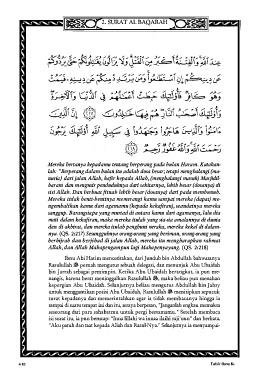 2. SURAT AL BAQARAH
عِندَ اللَّهِ وَالْفِتْنَةُ أَكْبَرُ مِنَ الْقَتْلِ وَلَا يَزَالُونَ يُقَاتِلُونَكُمْ حَتَّىٰ يَرُدُّوكُمْ
عَن دِينِكُمْ إِنِ اسْتَطَاعُوا وَمَن يَرْتَدِدْ مِنكُمْ عَن دِينِهِ فَيَمُتْ
وَهُوَ كَافِرٌ فَأُولَٰئِكَ حَبِطَتْ أَعْمَالُهُمْ فِي الدُّنْيَا وَالْآخِرَةِ
وَأُولَٰئِكَ أَصْحَابُ النَّارِ هُمْ فِيهَا خَالِدُونَ إِنَّ الَّذِينَ
آمَنُوا وَالَّذِينَ هَاجَرُوا وَجَاهَدُوا فِي سَبِيلِ اللَّهِ أُولَٰئِكَ يَرْجُونَ
رَحْمَتَ اللَّهِ وَاللَّهُ غَفُورٌ رَّحِيمٌ
Mereka bertanya kepadamu tentang berperang pada bulan Haram. Katakan-
lah: "Berperang dalam bulan itu adalah dosa besar; tetapi menghalangi (ma-
nusia) dari jalan Allah, kafir kepada Allah, (menghalangi masuk) Masjidil-
haram dan mengusir penduduknya dari sekitarnya, lebih besar (dosanya) di
sisi Allah. Dan berbuat fitnah lebih besar (dosanya) dari pada membunuh.
Mereka tidak henti-hentinya memerangi kamu sampai mereka (dapat) me-
ngembalikan kamu dari agamamu (kepada kekafiran), seandainya mereka
sanggup. Barangsiapa yang murtad di antara kamu dari agamanya, lalu dia
mati dalam kekafiran, maka mereka itulah yang sia-sia amalannya di dunia
dan di akhirat, dan mereka itulah penghuni neraka, mereka kekal di dalam-
nya. (QS. 2:217) Sesungguhnya orang-orang yang beriman, orang-orang yang
berhijrah dan berjihad di jalan Allah, mereka itu mengharapkan rahmat
Allah, dan Allah Mahapengampun lagi Mahapenyayang. (QS. 2:218)
Ibnu Abi Hatim menceritakan, dari Jundub bin Abdullah bahwasanya
Rasulullah ﷺ pernah mengutus sebuah delegasi, dan menunjuk Abu Ubaidah
bin Jarrah sebagai pemimpin. Ketika Abu Ubaidah berangkat, ia pun me-
nangis, karena berat meninggalkan Rasulullah ﷺ, maka beliau pun menahan
kepergian Abu Ubaidah. Selanjutnya beliau mengutus Abdullah bin Jahsy
untuk menggantikan posisi Abu Ubaidah. Rasulullah ﷺ menitipkan sepucuk
surat kepadanya dan memerintahkan agar ia tidak membacanya hingga ia
sampai di suatu tempat ini dan itu, seraya berpesan, "Janganlah engkau memaksa
seseorang dari para sahabatmu untuk pergi bersamamu." Setelah membaca
isi surat itu, ia pun berucap: "Inna lillahi wa innaa ilaihi raji'uun" dan berkata,
"Aku patuh dan taat kepada Allah dan Rasul-Nya." Selanjutnya ia menyampai-